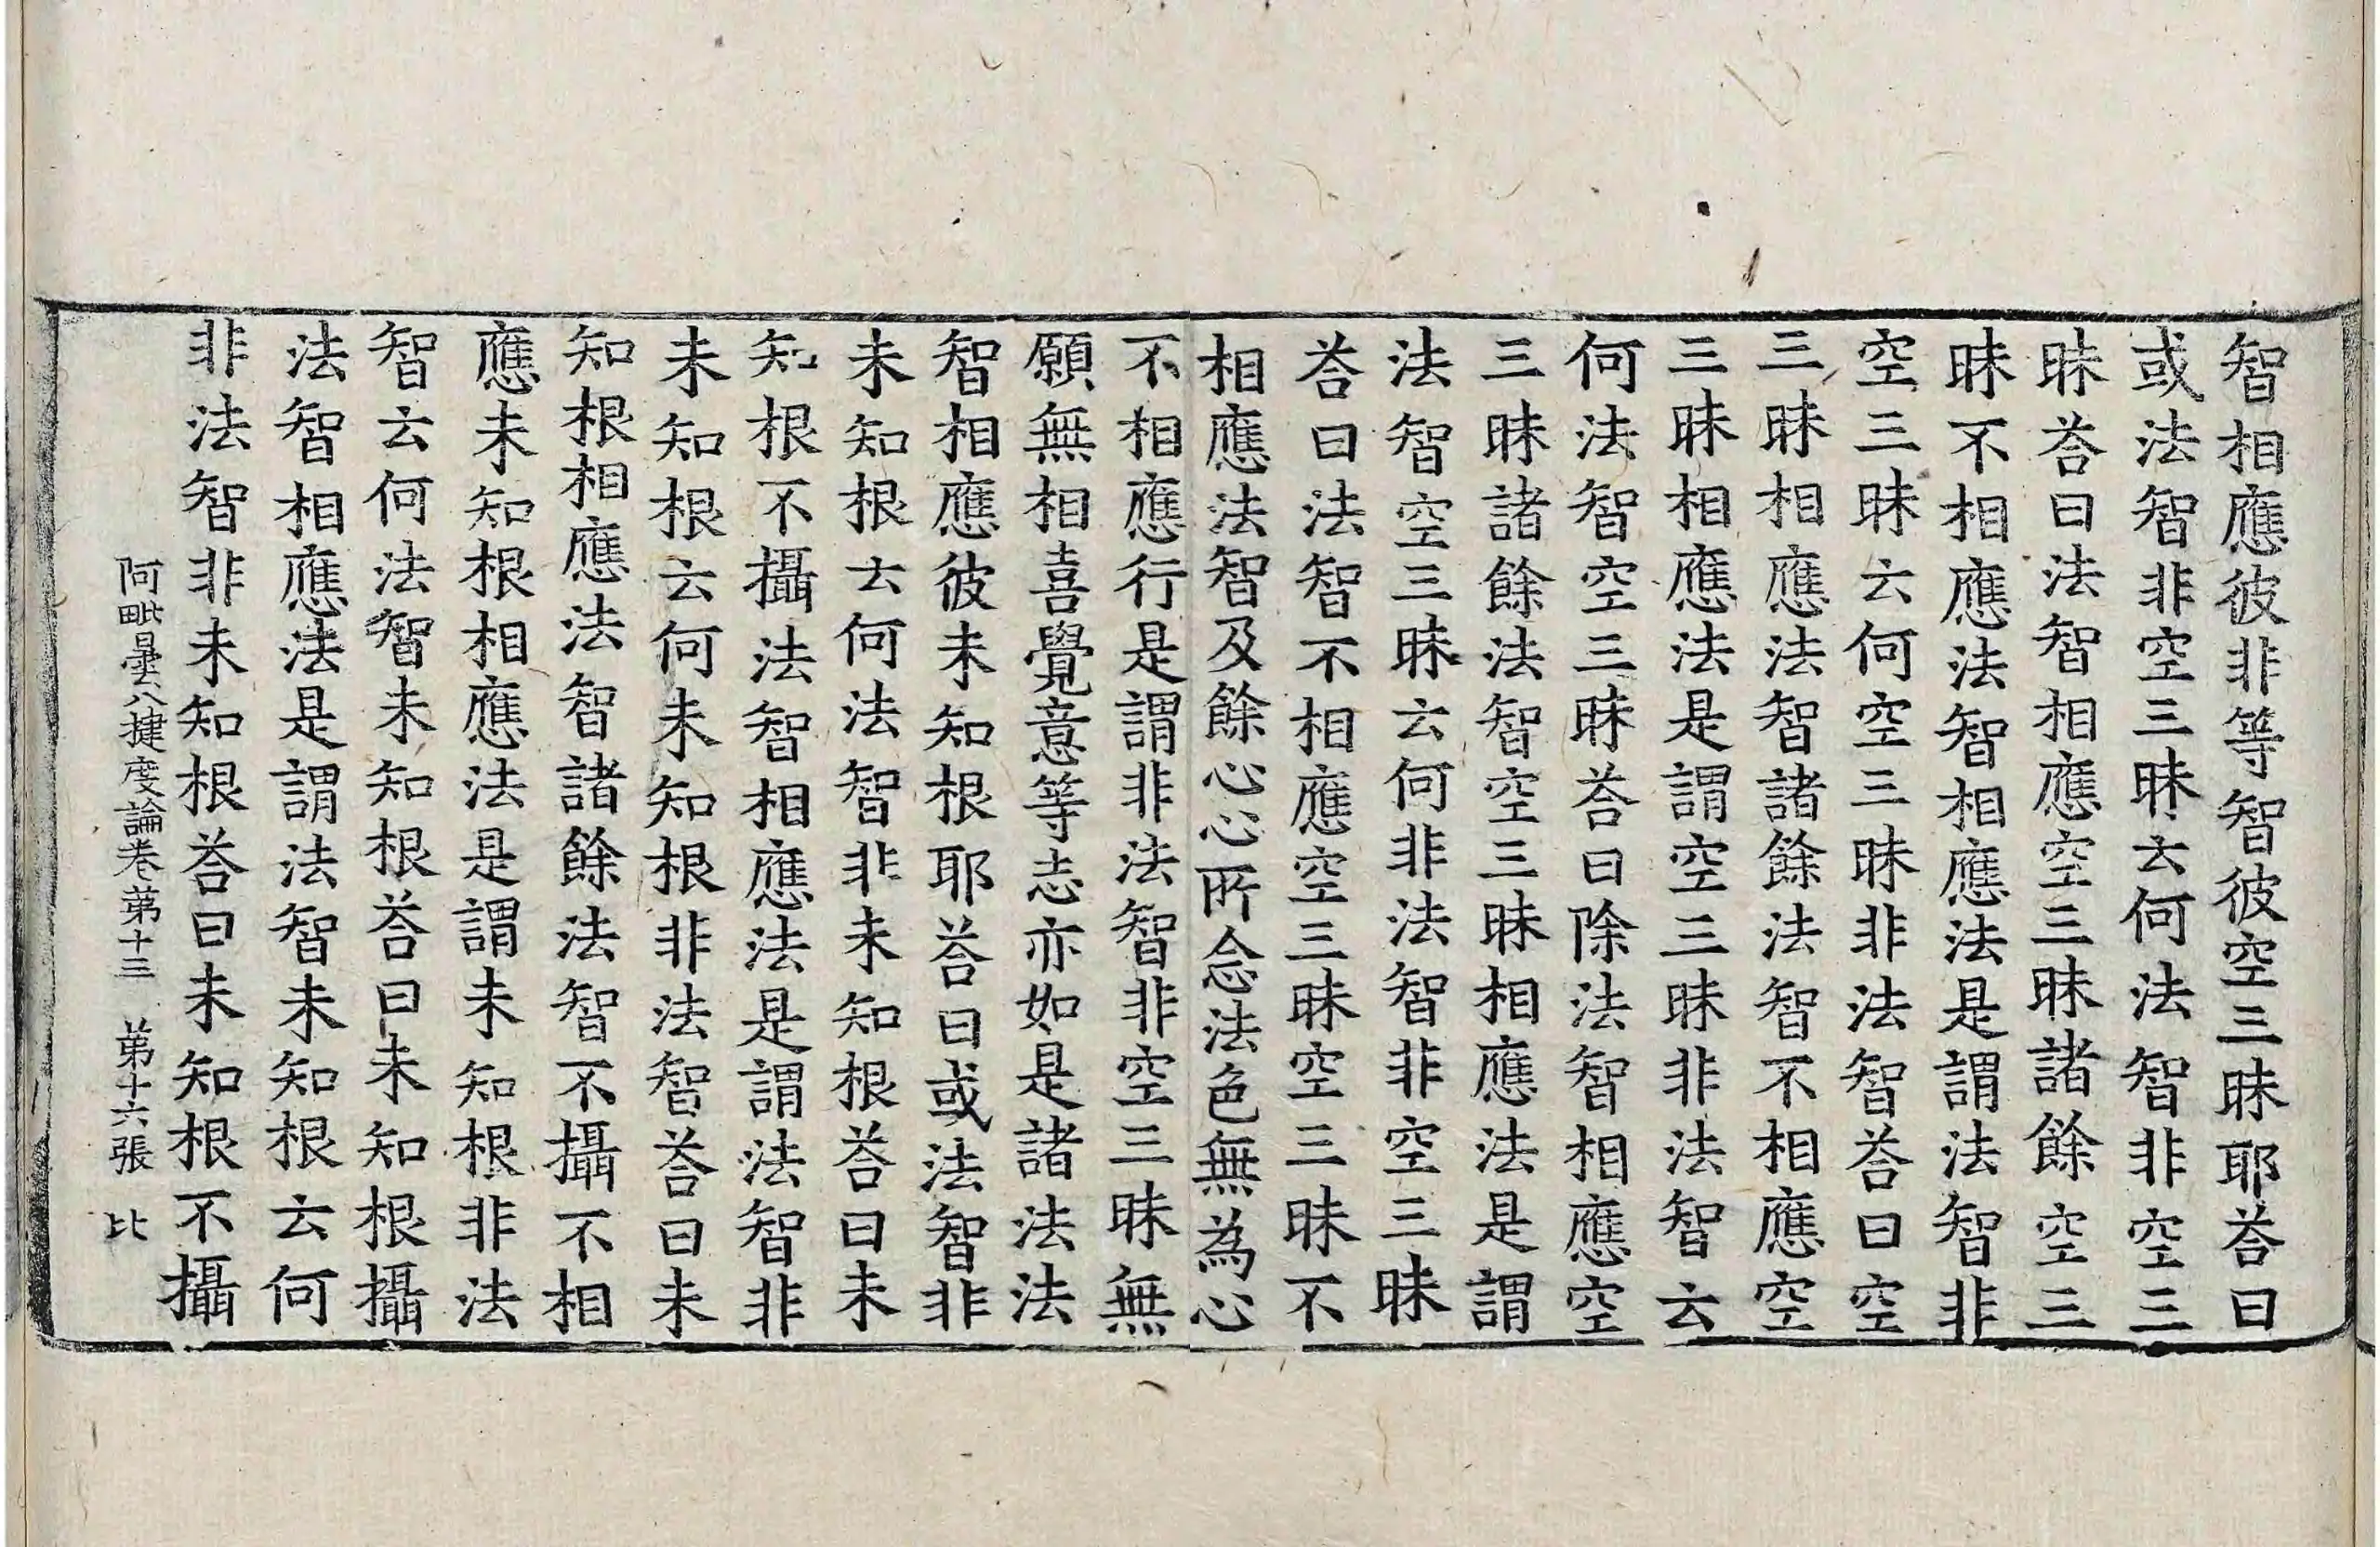 智相應彼非等智彼空三昧耶荅曰
或法智非空三昧云何法智非空三
昧荅曰法智相應空三昧諸餘空三
昧不相應法智相應法是謂法智非
空三昧云何空三昧非法智荅曰空
三昧相應法智諸餘法智不相應空
三昧相應法是謂空三昧非法智云
何法智空三昧荅曰除法智相應空
三昧諸餘法智空三昧相應法是謂
法智空三昧云何非法智非空三昧
荅曰法智不相應空三昧空三昧不
相應法智及餘心心所念法色無為心
不相應行是謂非法智非空三昧無
願無相喜覺意等志亦如是諸法法
智相應彼未知根耶荅曰或法智非
未知根云何法智非未知根荅曰未
知根不攝法智相應法是謂法智非
未知根云何未知根非法智荅曰未
知根相應法智諸餘法智不攝不相
應未知根相應法是謂未知根非法
智云何法智未知根荅曰未知根攝
法智相應法是謂法智未知根云何
非法智非未知根荅曰未知根不攝
阿毗曇八揵度論卷第十三 第十六張 比